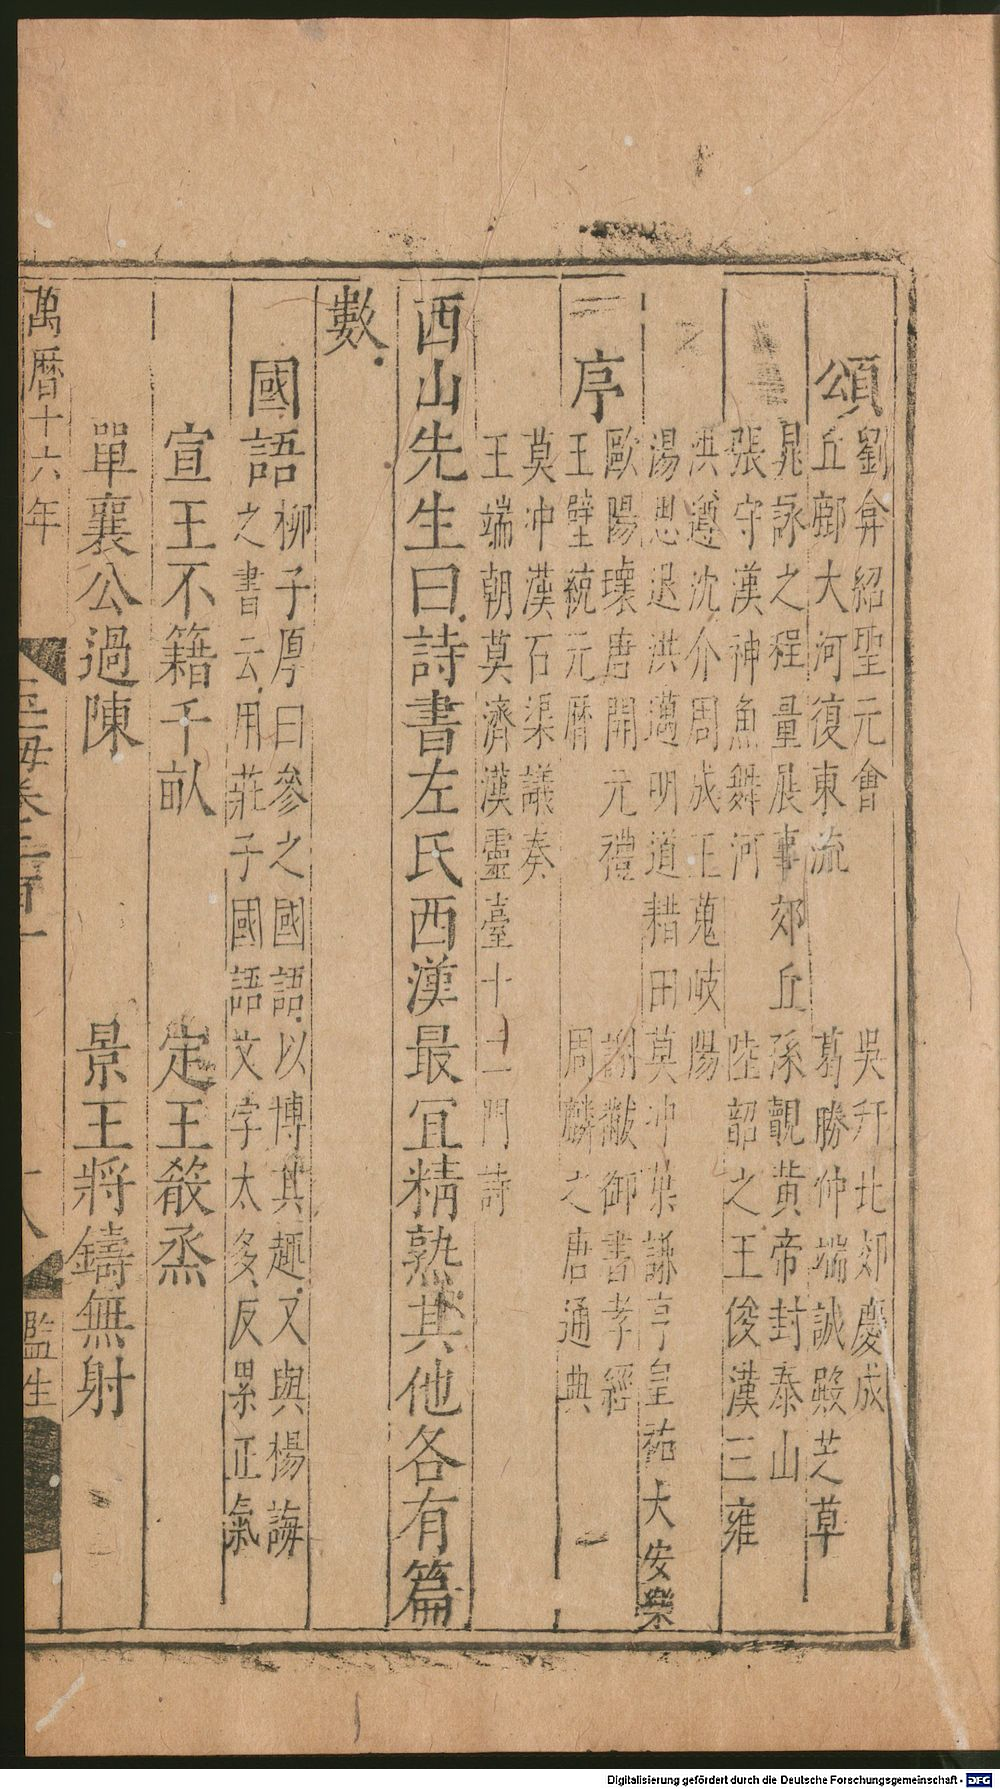 頌
劉弇紹聖元會　吳幵北郊慶成
丘鄜大河復東流　葛勝仲端誠殿芝草
晁詠之程量展事郊丘　孫覿黃帝封泰山
張守漢神魚舞河　陸韶之王俊漢三雍
洪遵沈介周成王蒐岐陽
湯思退洪邁明道耤田　莫冲葉謙亨皇祐大安樂
序
歐陽瓌唐開元禮　謝黻御書孝經
王壁統元曆　周麟之唐通典
莫冲漢石渠議奏
王端朝莫濟漢靈臺十二門詩
西山先生曰詩書左氏西漢最宜精熟其他各有篇
數
國語
柳子厚曰參之國語以博其趣又與楊誨
之書云用莊子國語文字太多反累正氣
宣王不籍千畝　定王殽烝
單襄公過陳　景王將鑄無射
萬曆十六年
玉海卷二百一
十八
監生
Digitalisierung gefördert durch die Deutsche Forschungsgemeinschaft - DFG